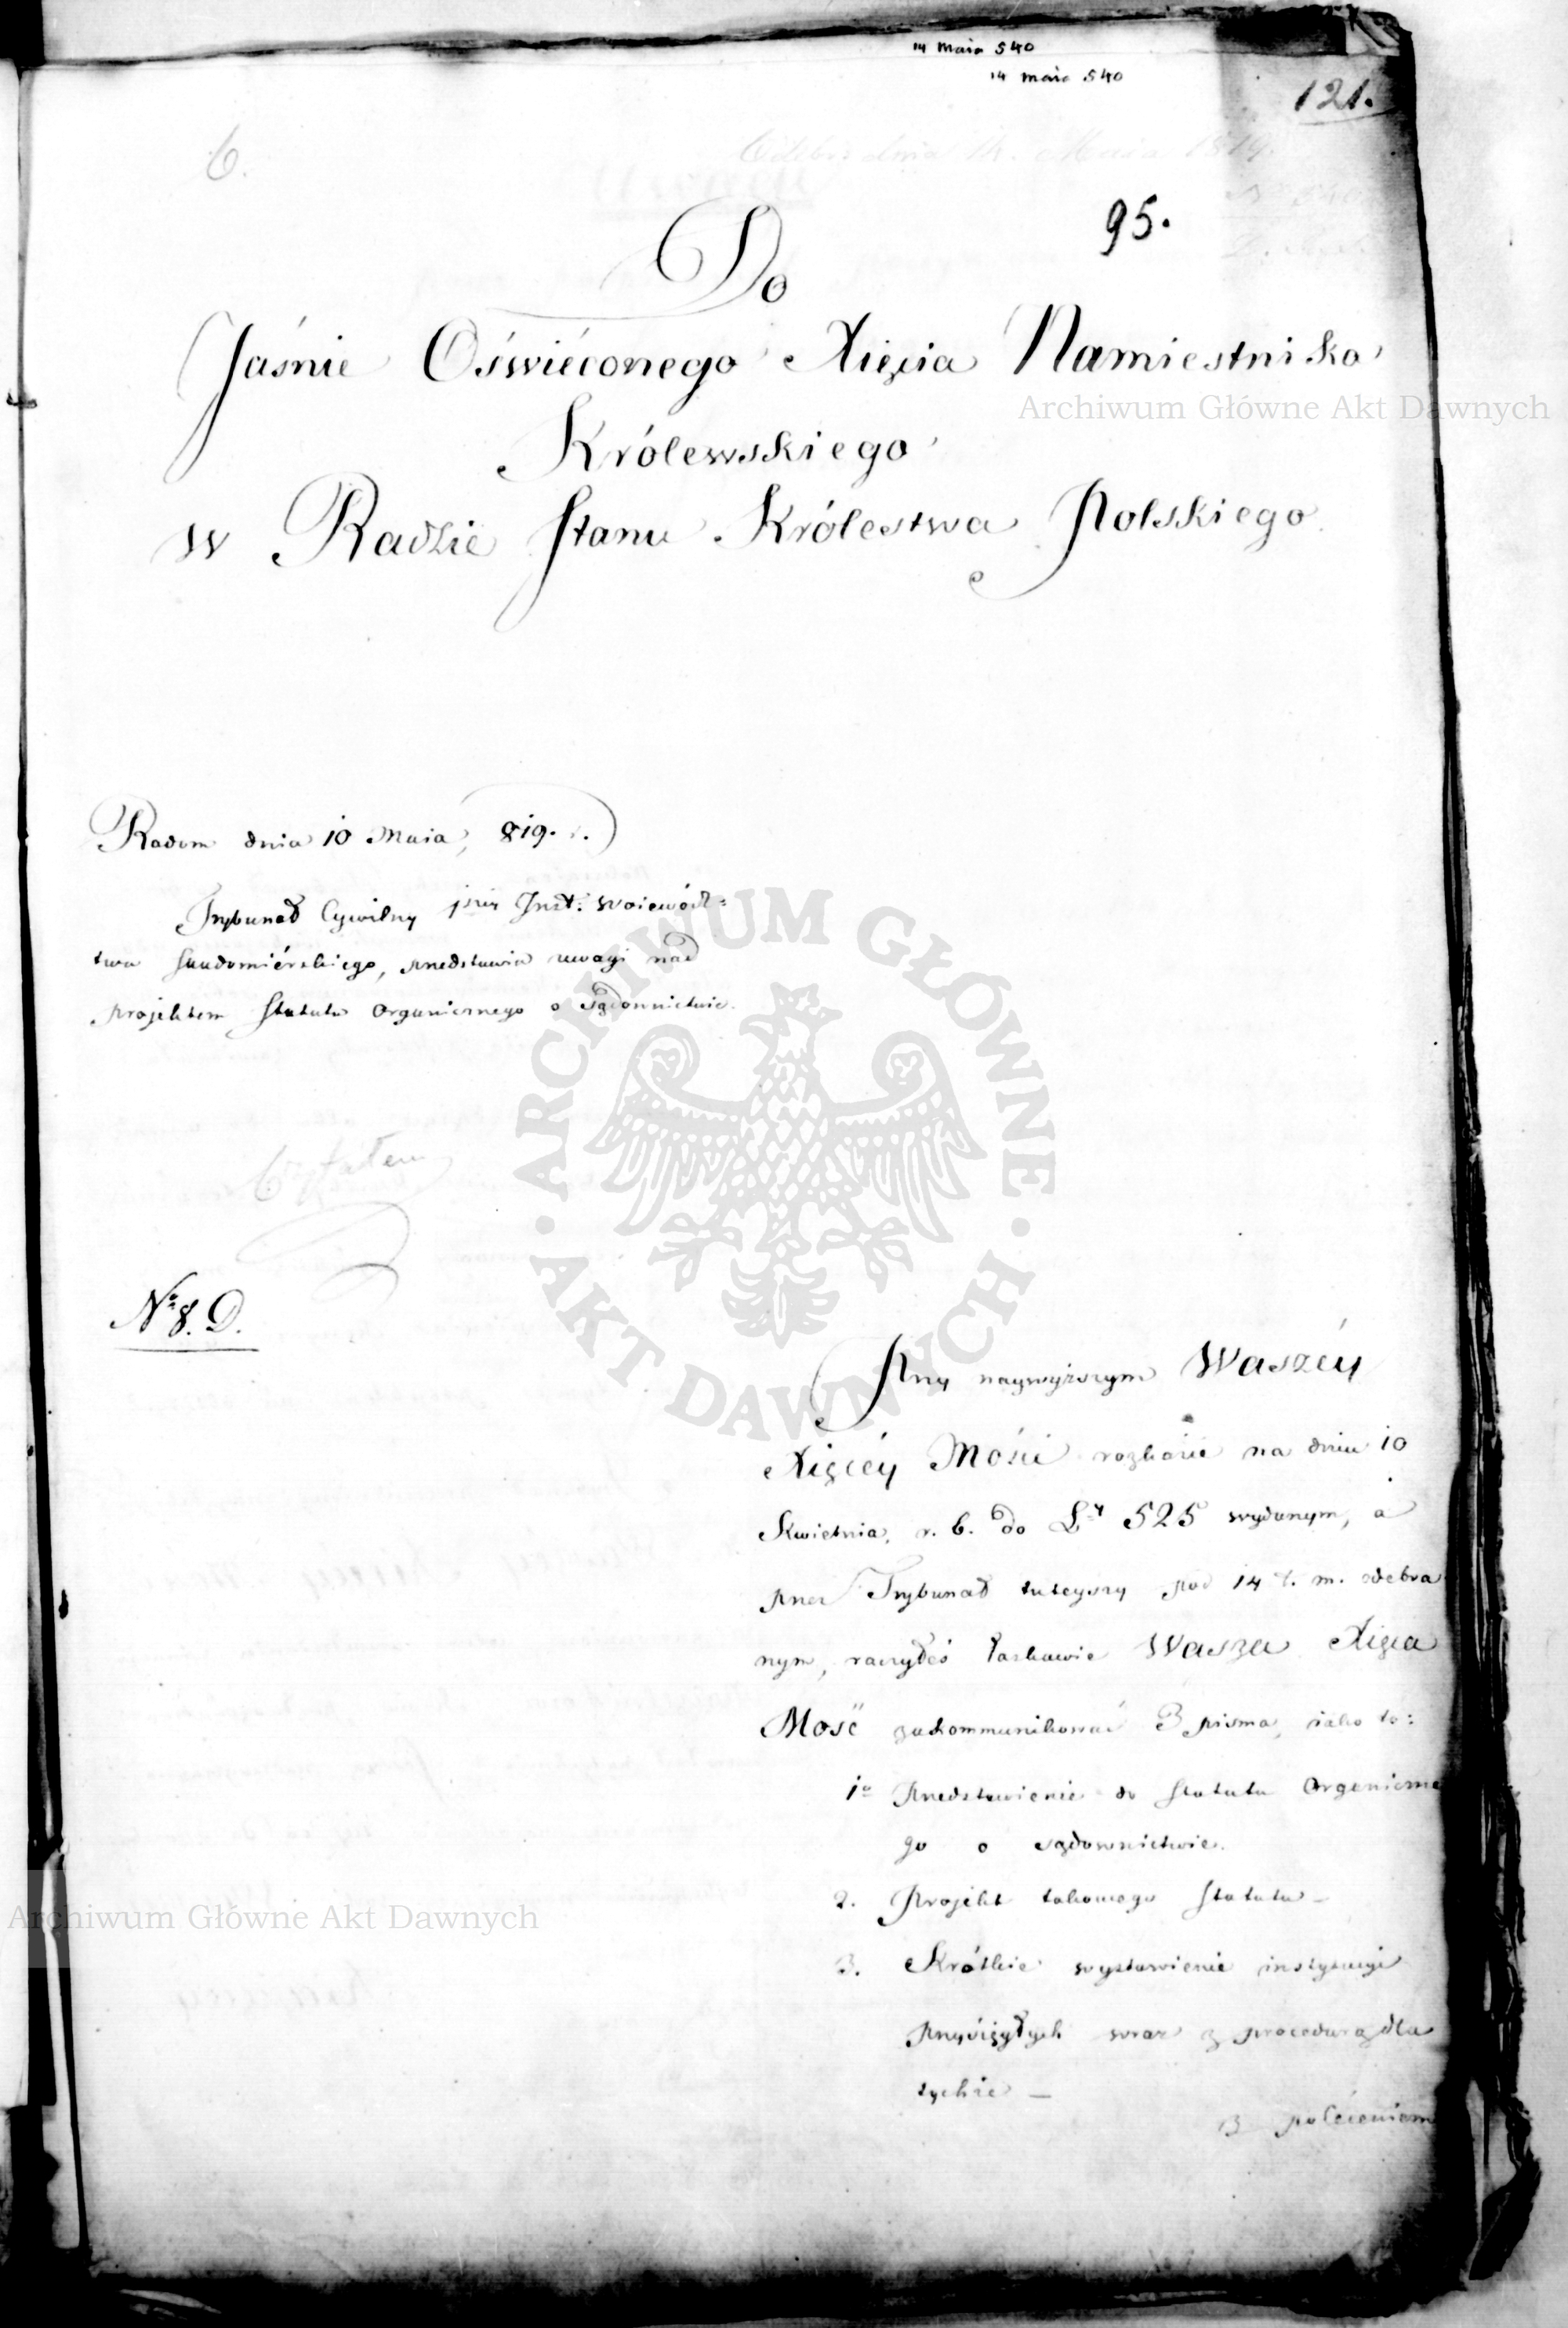 14 maia 540
14 maia 540
121.
6.
Odebr. dnia 14. Maia 1819.
95.
Do
Jaśnie Oświéconego Xięcia Namiestnika
Archiwum Główne Akt Dawnych
Królewskiego
w Radzie Stanu Królestwa Polskiego
Radom dnia 10 Maia, 819. r.
Trybunał Cywilny 1szej Inst: Woiewódz=
twa Sandomiérskiego, przedstawia uwagi nad
projektem Statutu Organicznego o Sądownictwie.
ARCHIWUM GŁÓWNE
AKT DAWNYCH
Czytałem
No 8. D.
Przy naywyższym Waszéy
Xięcéy Mości rozkazie na dniu 10
Kwietnia, r. b. do Lry 525 wydanym, a
przez Trybunał tuteyszy pod 14 t. m. odebra
nym, raczyłeś łaskawie Wasza Xięca
Mość zakommunikować 3 pisma, iako to:
1o Przedstawienie do Statutu Organiczne
go o sądownictwie.
2. Projekt takowego Statutu –
Archiwum Główne Akt Dawnych
3. Krótkie wystawienie instytucyi
Przysięgłych wraz z procedurą dla
tychże –
Z poleceniem